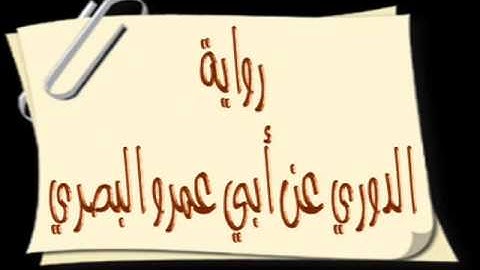 رواية
الدوري عن أبي عمرو البصري